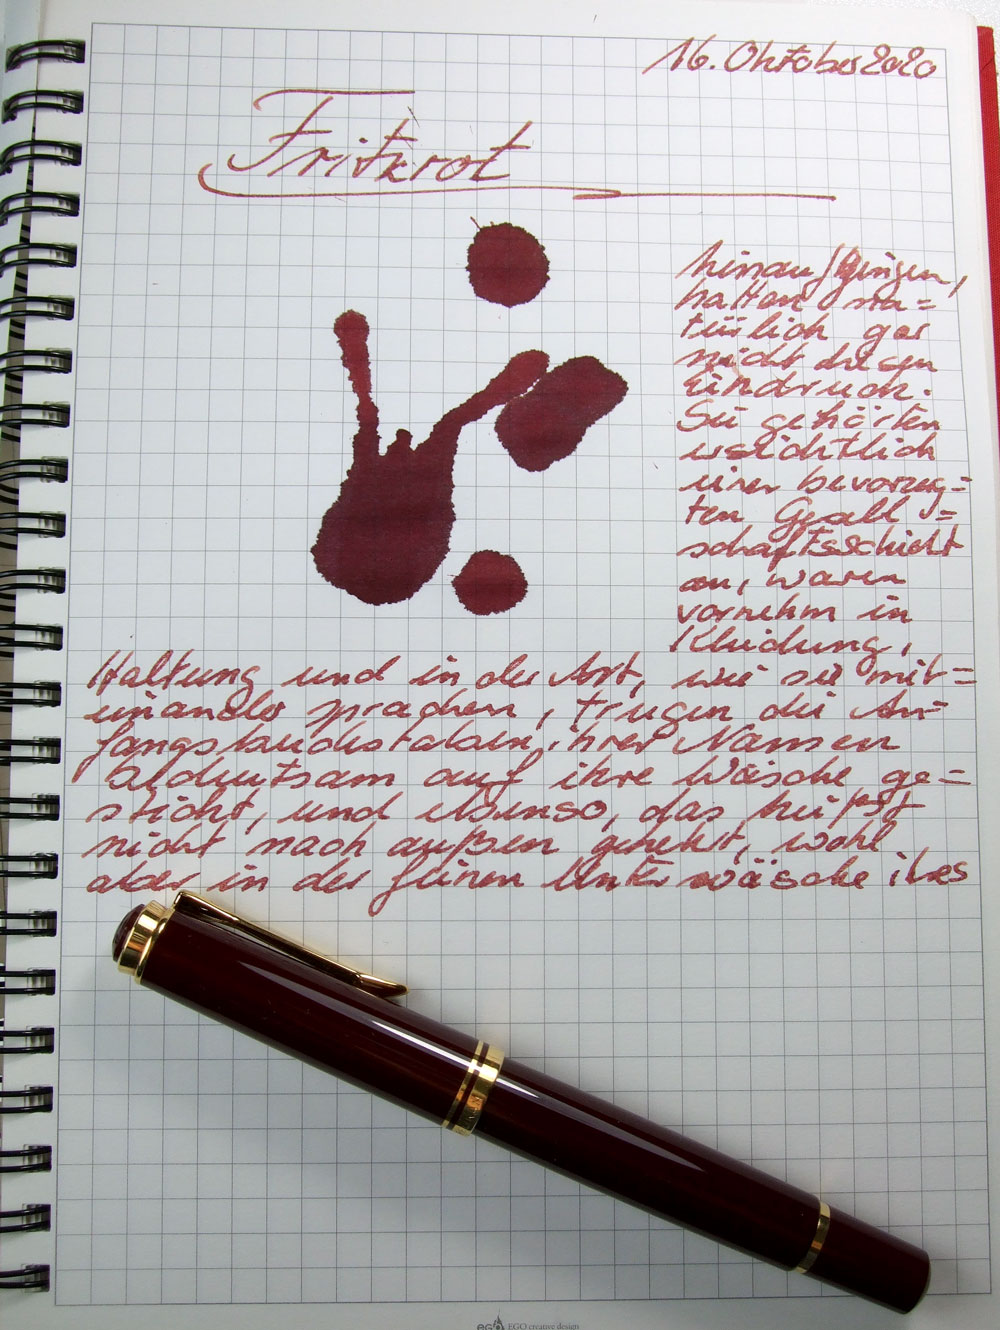 16. Oktober 2020
Fritkrot
hinauf gingen,
hatten na=
türlich gar
nicht diesen
Eindruck.
Sie gehörten
ersichtlich
einer bevorzug=
ten Gesell=
schaftsschicht
an, waren
vornehm in
Kleidung,
Haltung und in der Art, wie sie mit=
einander sprachen, trugen die An=
fangsbuchstaben ihrer Namen
bedeutsam auf ihre Wäsche ge=
stickt, und ebenso, das heißt
nicht nach außen gekehrt, wohl
aber in der feinen Unterwäsche ihres
EGO EGO creative design